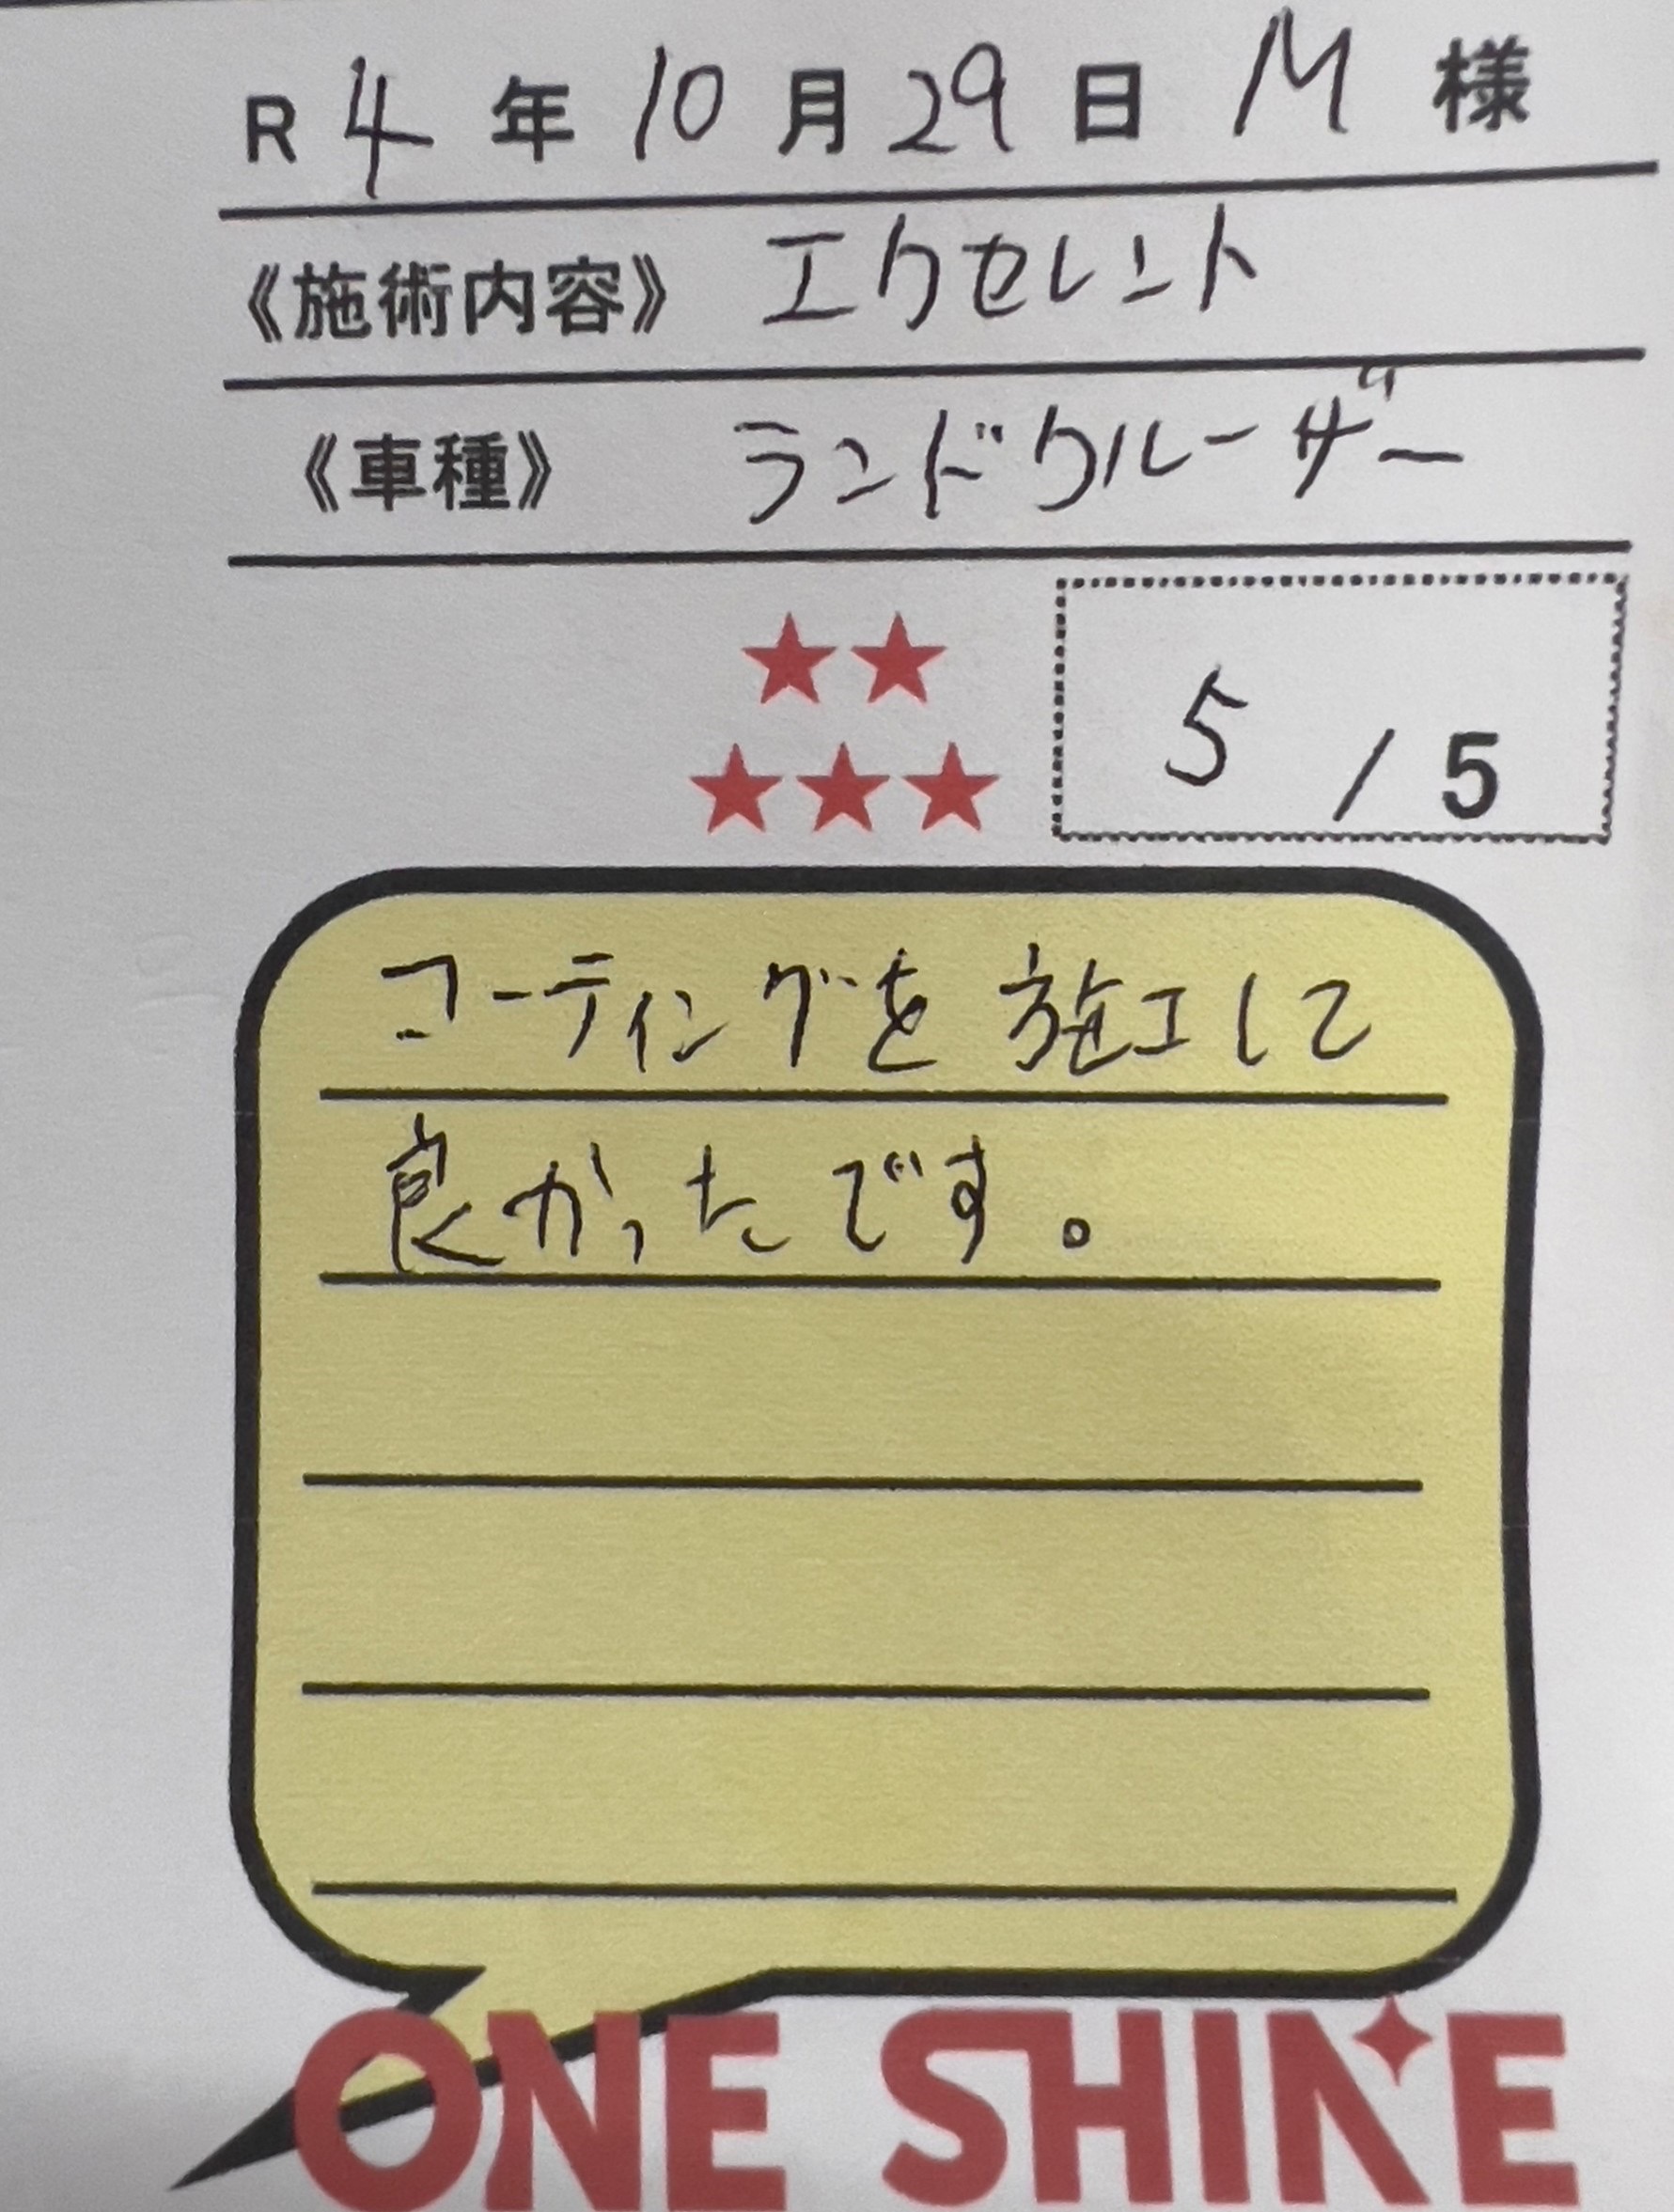 R 4 年 10 月 29 日 M 様
《施術内容》 エクセレント
《車種》 ランドクルーザー
★★
★★★
5 / 5
コーティングを施工して
良かったです。
ONE SHINE